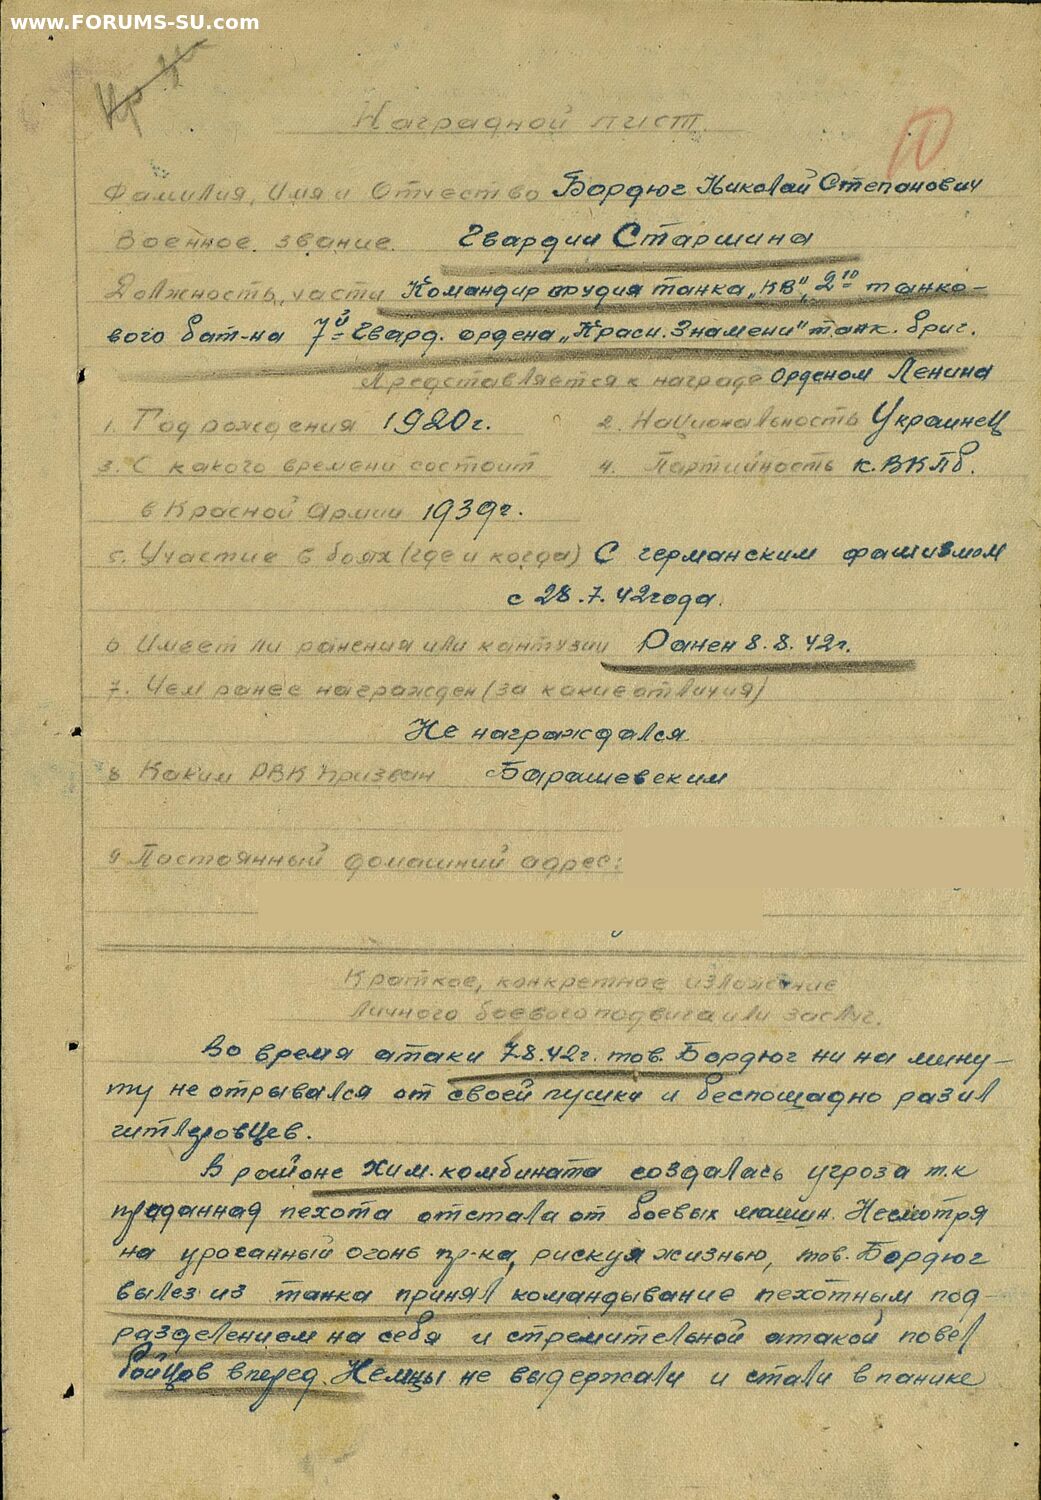 www.FORUMS-SU.com
Наградной лист.
Фамилия, Имя и Отчество Бордюг Николай Степанович
Военное звание. Гвардии Старшина
Должность, части Командир орудия танка „КВ", 2го танко-
вого бат-на 7й Гвард. ордена „Красн. Знамени" танк. бриг.
Представляется к награде Орденом Ленина
1. Год рождения 1920г. 2. Национальность Украинец
3. С какого времени состоит 4. Партийность к. ВКПб.
в Красной Армии 1939г.
5. Участие в боях (где и когда) С германским фашизмом
с 28.7.42года.
6. Имеет ли ранения или контузии Ранен 8.8.42г.
7. Чем ранее награжден (за какие отличия)
Не награждался
8 Каким РВК призван Барашевским
9 Постоянный домашний адрес:
Краткое, конкретное изложение
личного боевого подвига или заслуг.
Во время атаки 7.8.42г. тов. Бордюг ни на мину-
ту не отрывался от своей пушки и беспощадно разил
гитлеровцев.
В районе хим. комбината создалась угроза т.к
приданная пехота отстала от боевых машин. Несмотря
на ураганный огонь пр-ка, рискуя жизнью, тов. Бордюг
вылез из танка принял командывание пехотным под-
разделением на себя и стремительной атакой повел
бойцов вперед. Немцы не выдержали и стали в панике